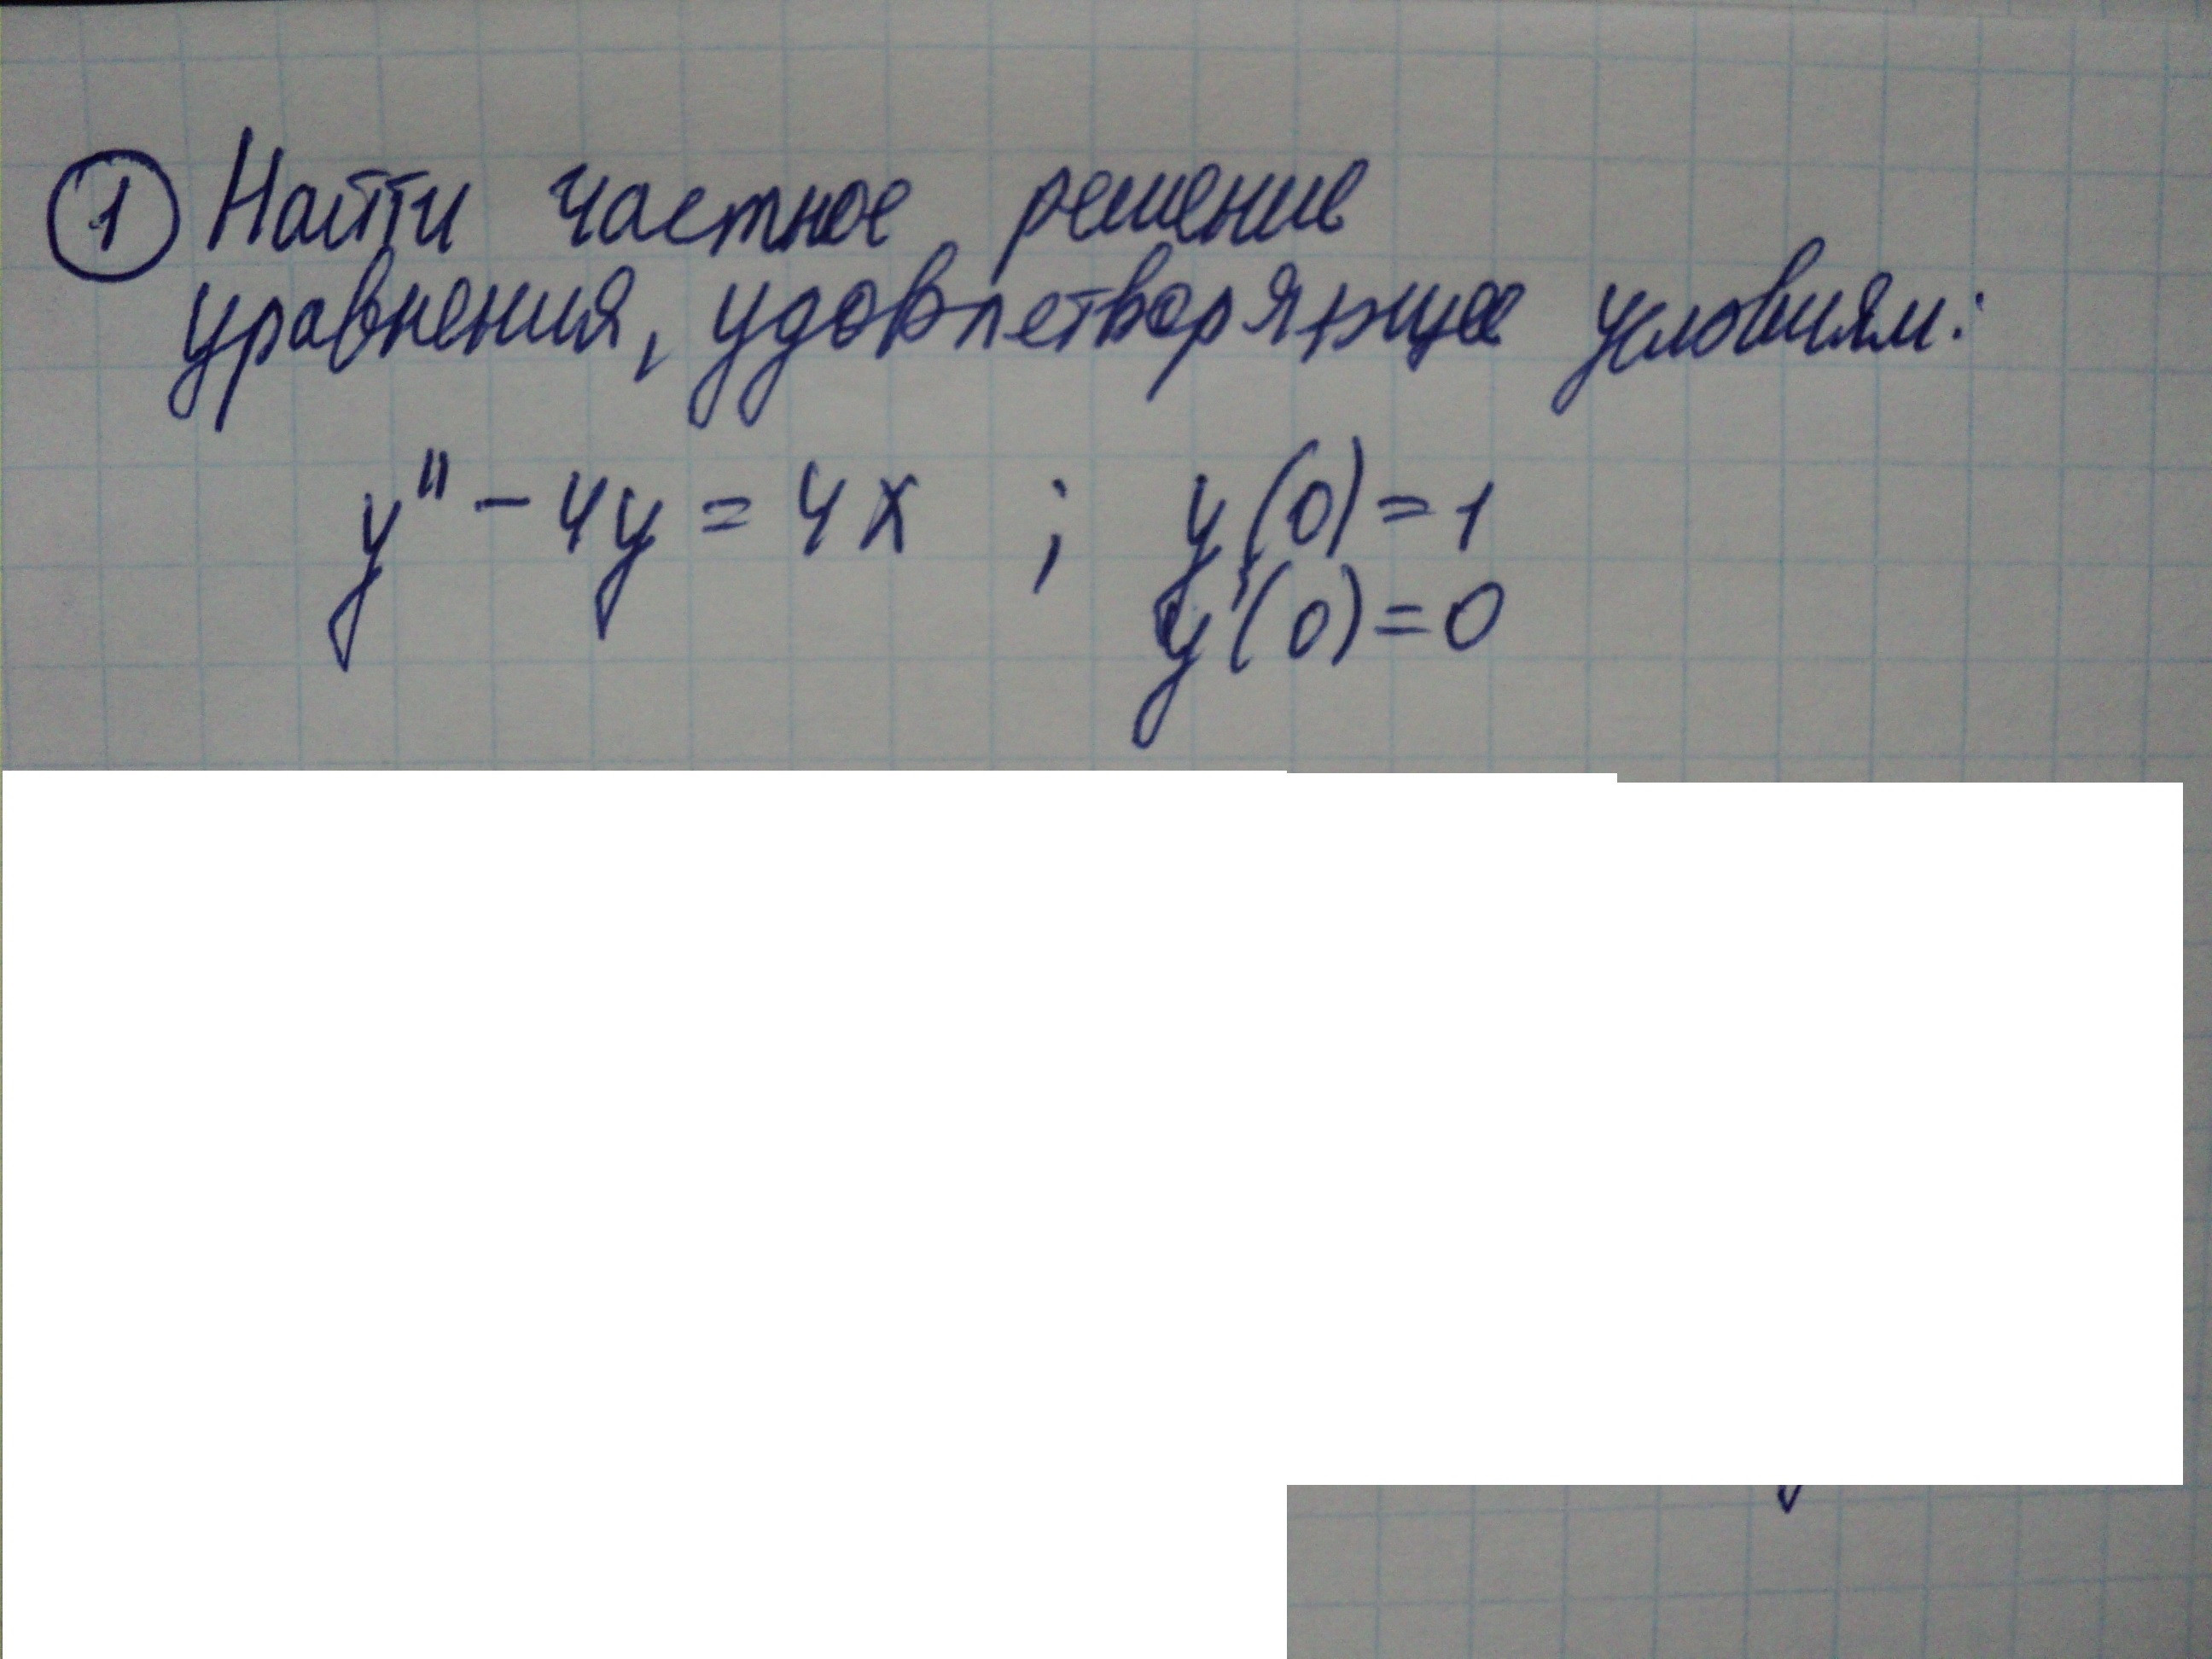 ① Найти частное решение
уравнения, удовлетворяющее условиям:
y" - 4y = 4x ; y(0)=1
y'(0)=0